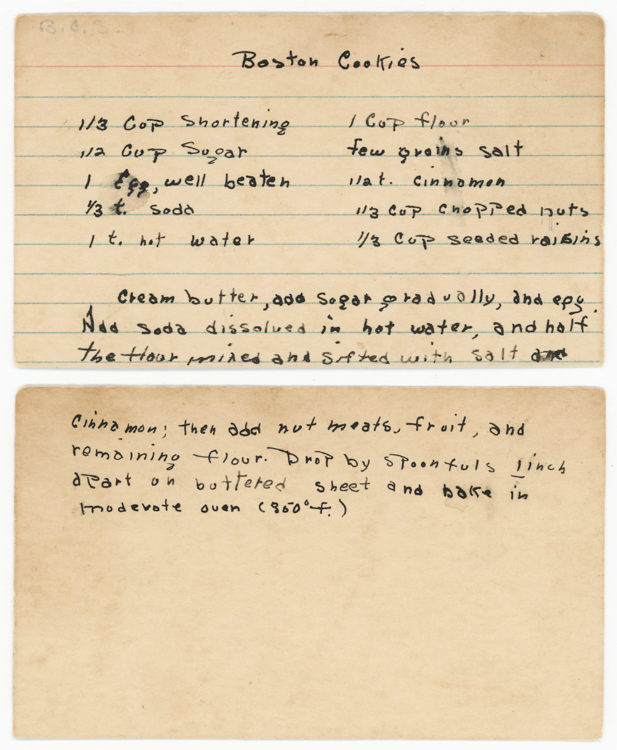 B.C.S.
Boston Cookies
1/3 Cup Shortening
1/2 Cup Sugar
1 Egg, well beaten
1/3 t. soda
1 t. hot water
1 Cup flour
few grains salt
1/2 t. Cinnamon
1/3 Cup chopped nuts
1/3 Cup seeded raisins
Cream butter, add sugar gradually, and egg.
Add soda dissolved in hot water, and half
the flour mixed and sifted with salt and
Cinnamon; then add nut meats, fruit, and
remaining flour. Drop by spoonfuls 1 inch
apart on buttered sheet and bake in
moderate oven (350°f.)